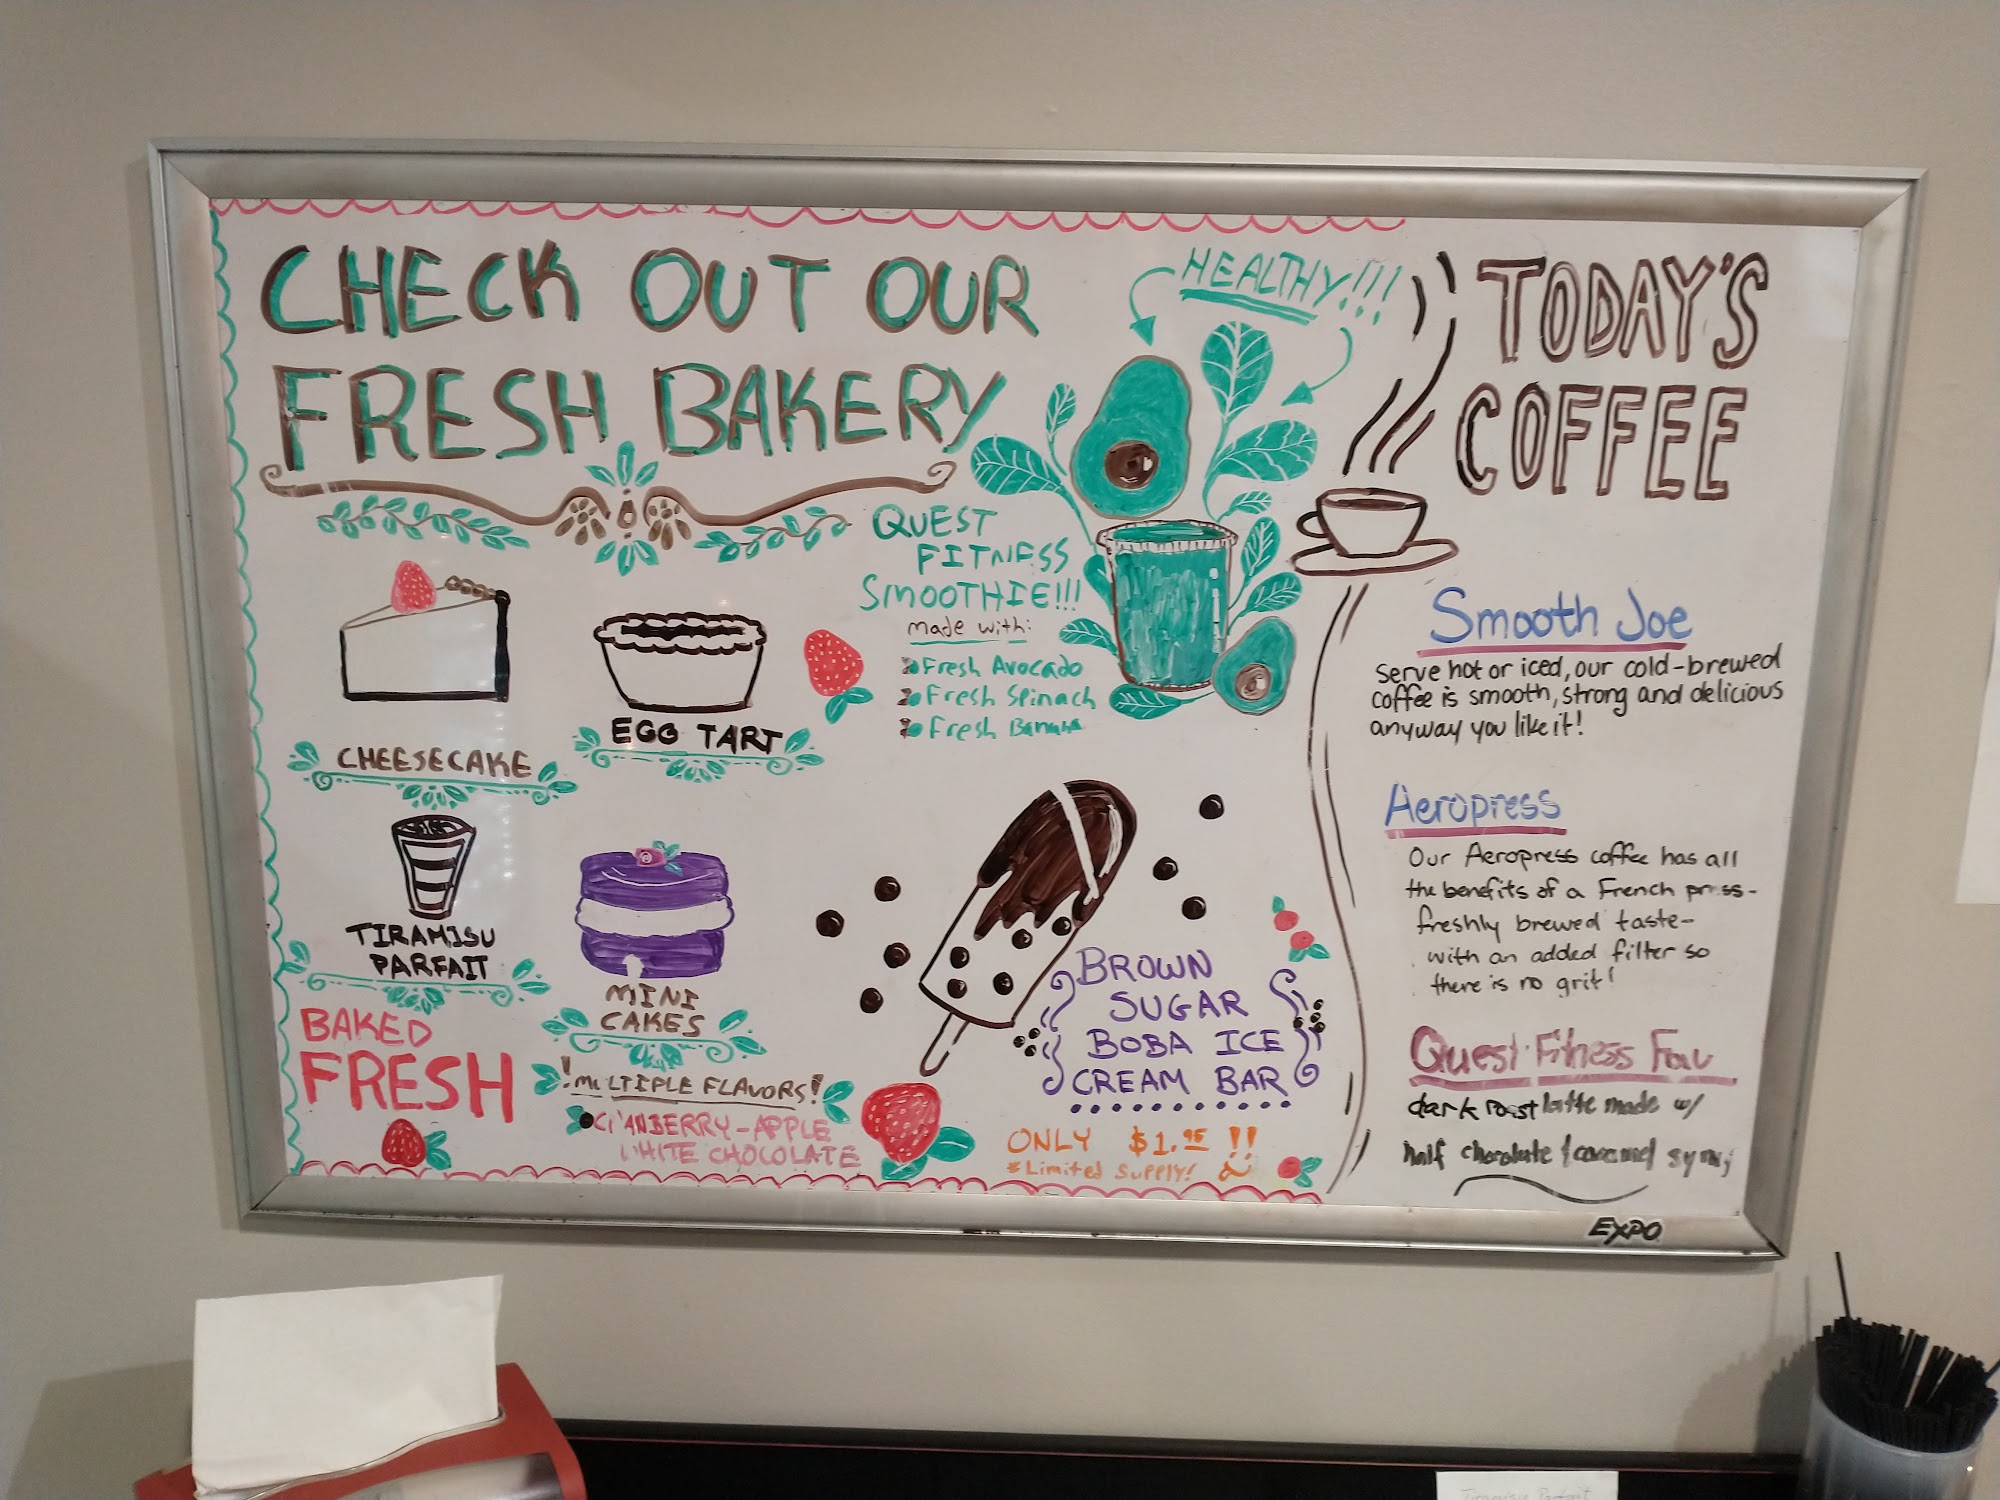 CHECK OUT OUR
FRESH BAKERY
CHEESECAKE
EGG TART
TIRAMISU
PARFAIT
MINI
CAKES
BAKED
FRESH
!MULTIPLE FLAVORS!
CRANBERRY-APPLE
WHITE CHOCOLATE
HEALTHY!!!
QUEST
FITNESS
SMOOTHIE!!!
made with:
Fresh Avocado
Fresh Spinach
Fresh Banana
BROWN
SUGAR
BOBA ICE
CREAM BAR
ONLY $1.95 !!
*Limited Supply!
TODAY'S
COFFEE
Smooth Joe
serve hot or iced, our cold-brewed
coffee is smooth, strong and delicious
anyway you like it!
Aeropress
Our Aeropress coffee has all
the benefits of a French press-
freshly brewed taste-
with an added filter so
there is no grit!
Quest Fitness Fav
dark roast latte made w/
half chocolate & caramel
EXPO
Tiramisu Parfait